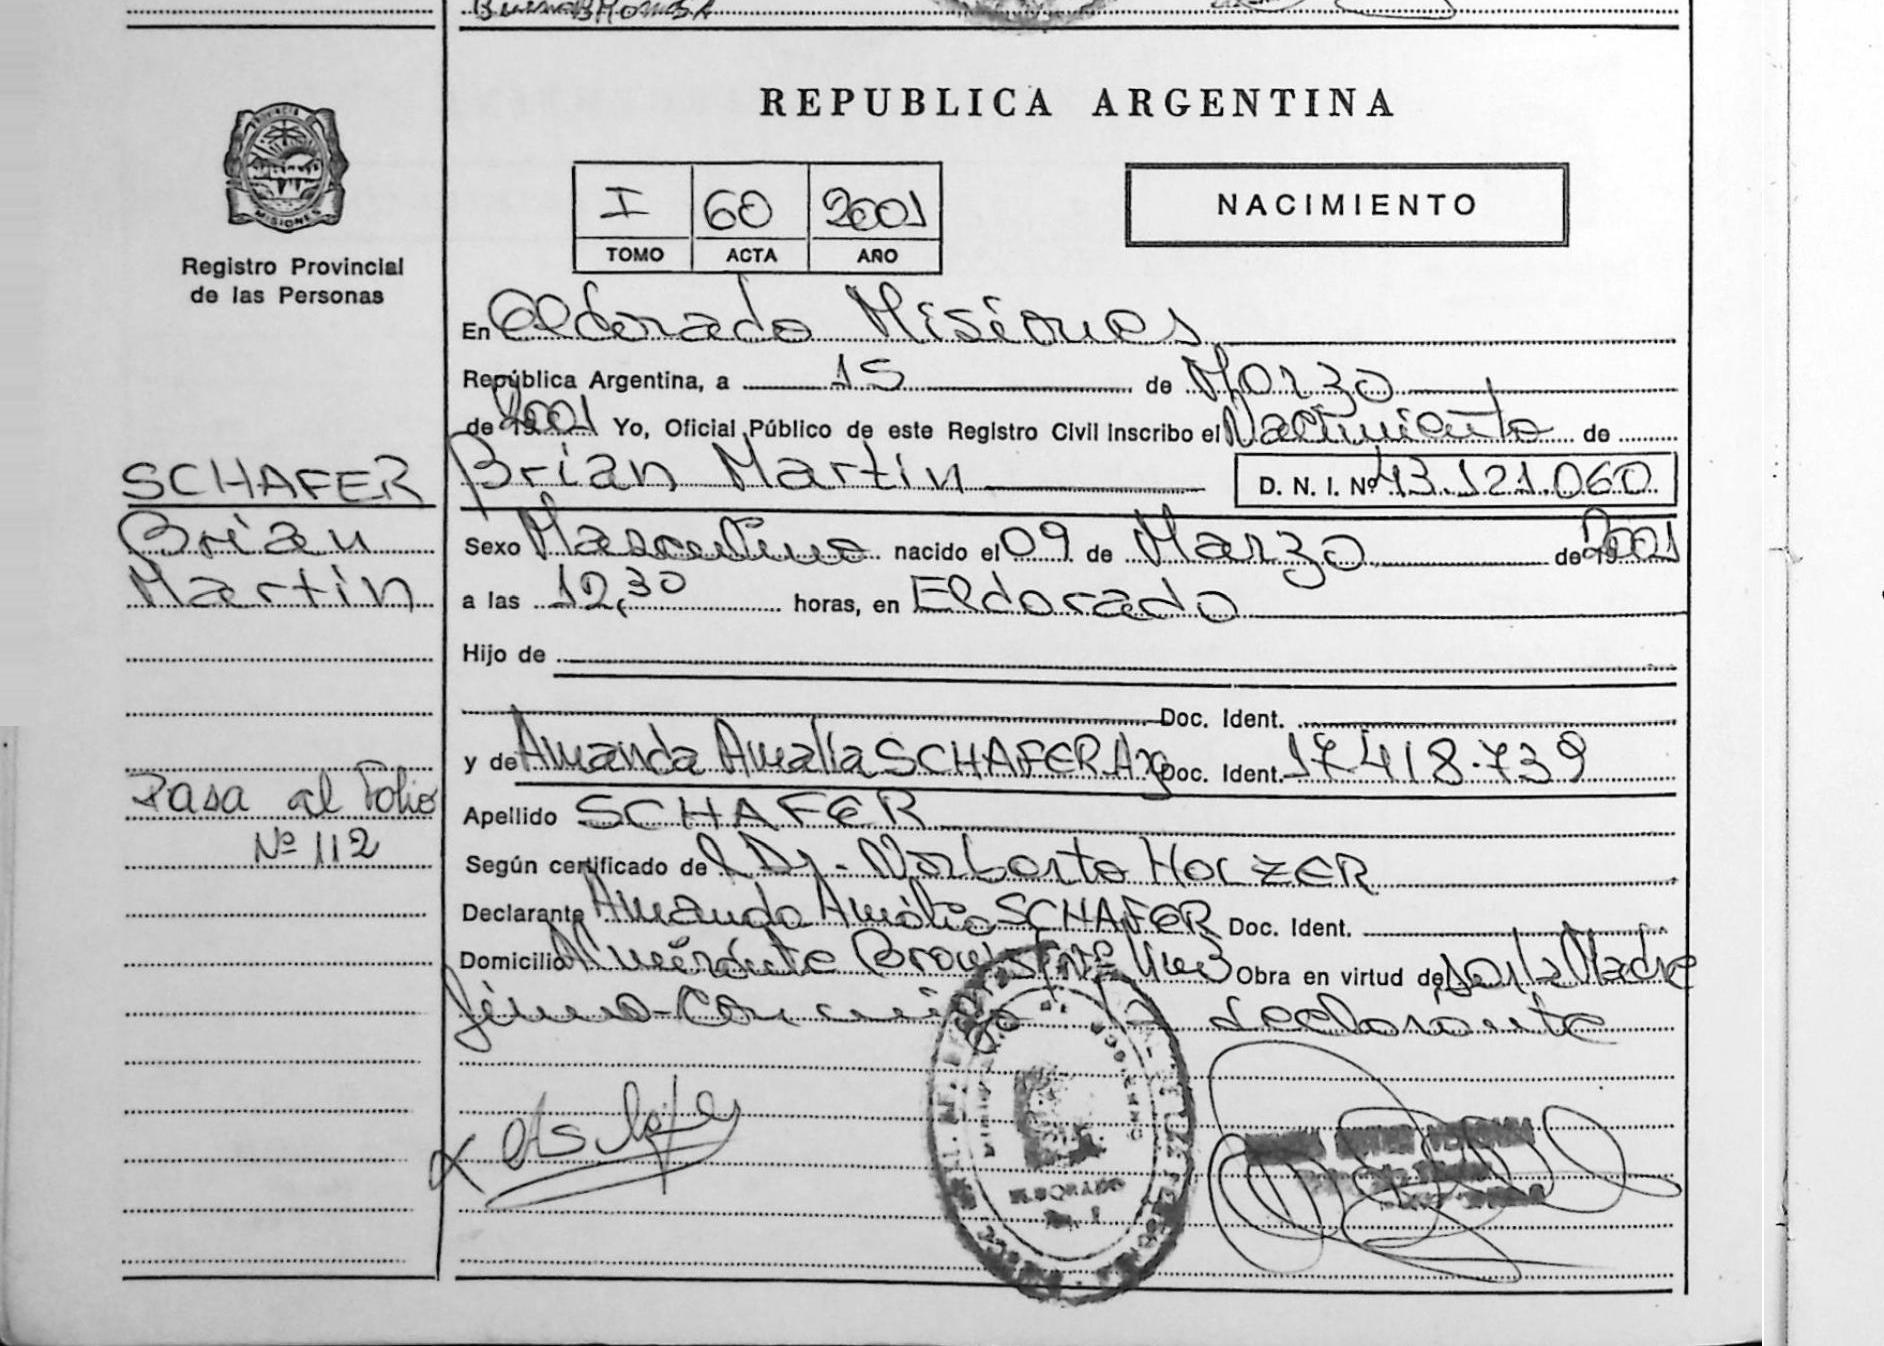 PROVINCIA DE
MISIONES
Registro Provincial
de las Personas
REPUBLICA ARGENTINA
I 60 2001
TOMO ACTA AÑO
NACIMIENTO
En Eldorado Misiones
República Argentina, a 15 de Marzo
de 2001 Yo, Oficial Público de este Registro Civil inscribo el Nacimiento de
SCHAFER
Brian
Martin
Brian Martin D. N. I. Nº 43.121.060
Sexo Masculino nacido el 09 de Marzo de 2001
a las 12,30 horas, en Eldorado
Hijo de
Doc. Ident.
y de Amanda Amalia SCHAFER Arg Doc. Ident. 17.418.739
Pasa al Folio
Nº 112
Apellido SCHAFER
Según certificado del Dr. Norberto HOLZER
Declarante Amanda Amalia SCHAFER Doc. Ident.
Domicilio Almirante Brown Obra en virtud de ser la Madre
firma conmigo la declarante
ELDORADO